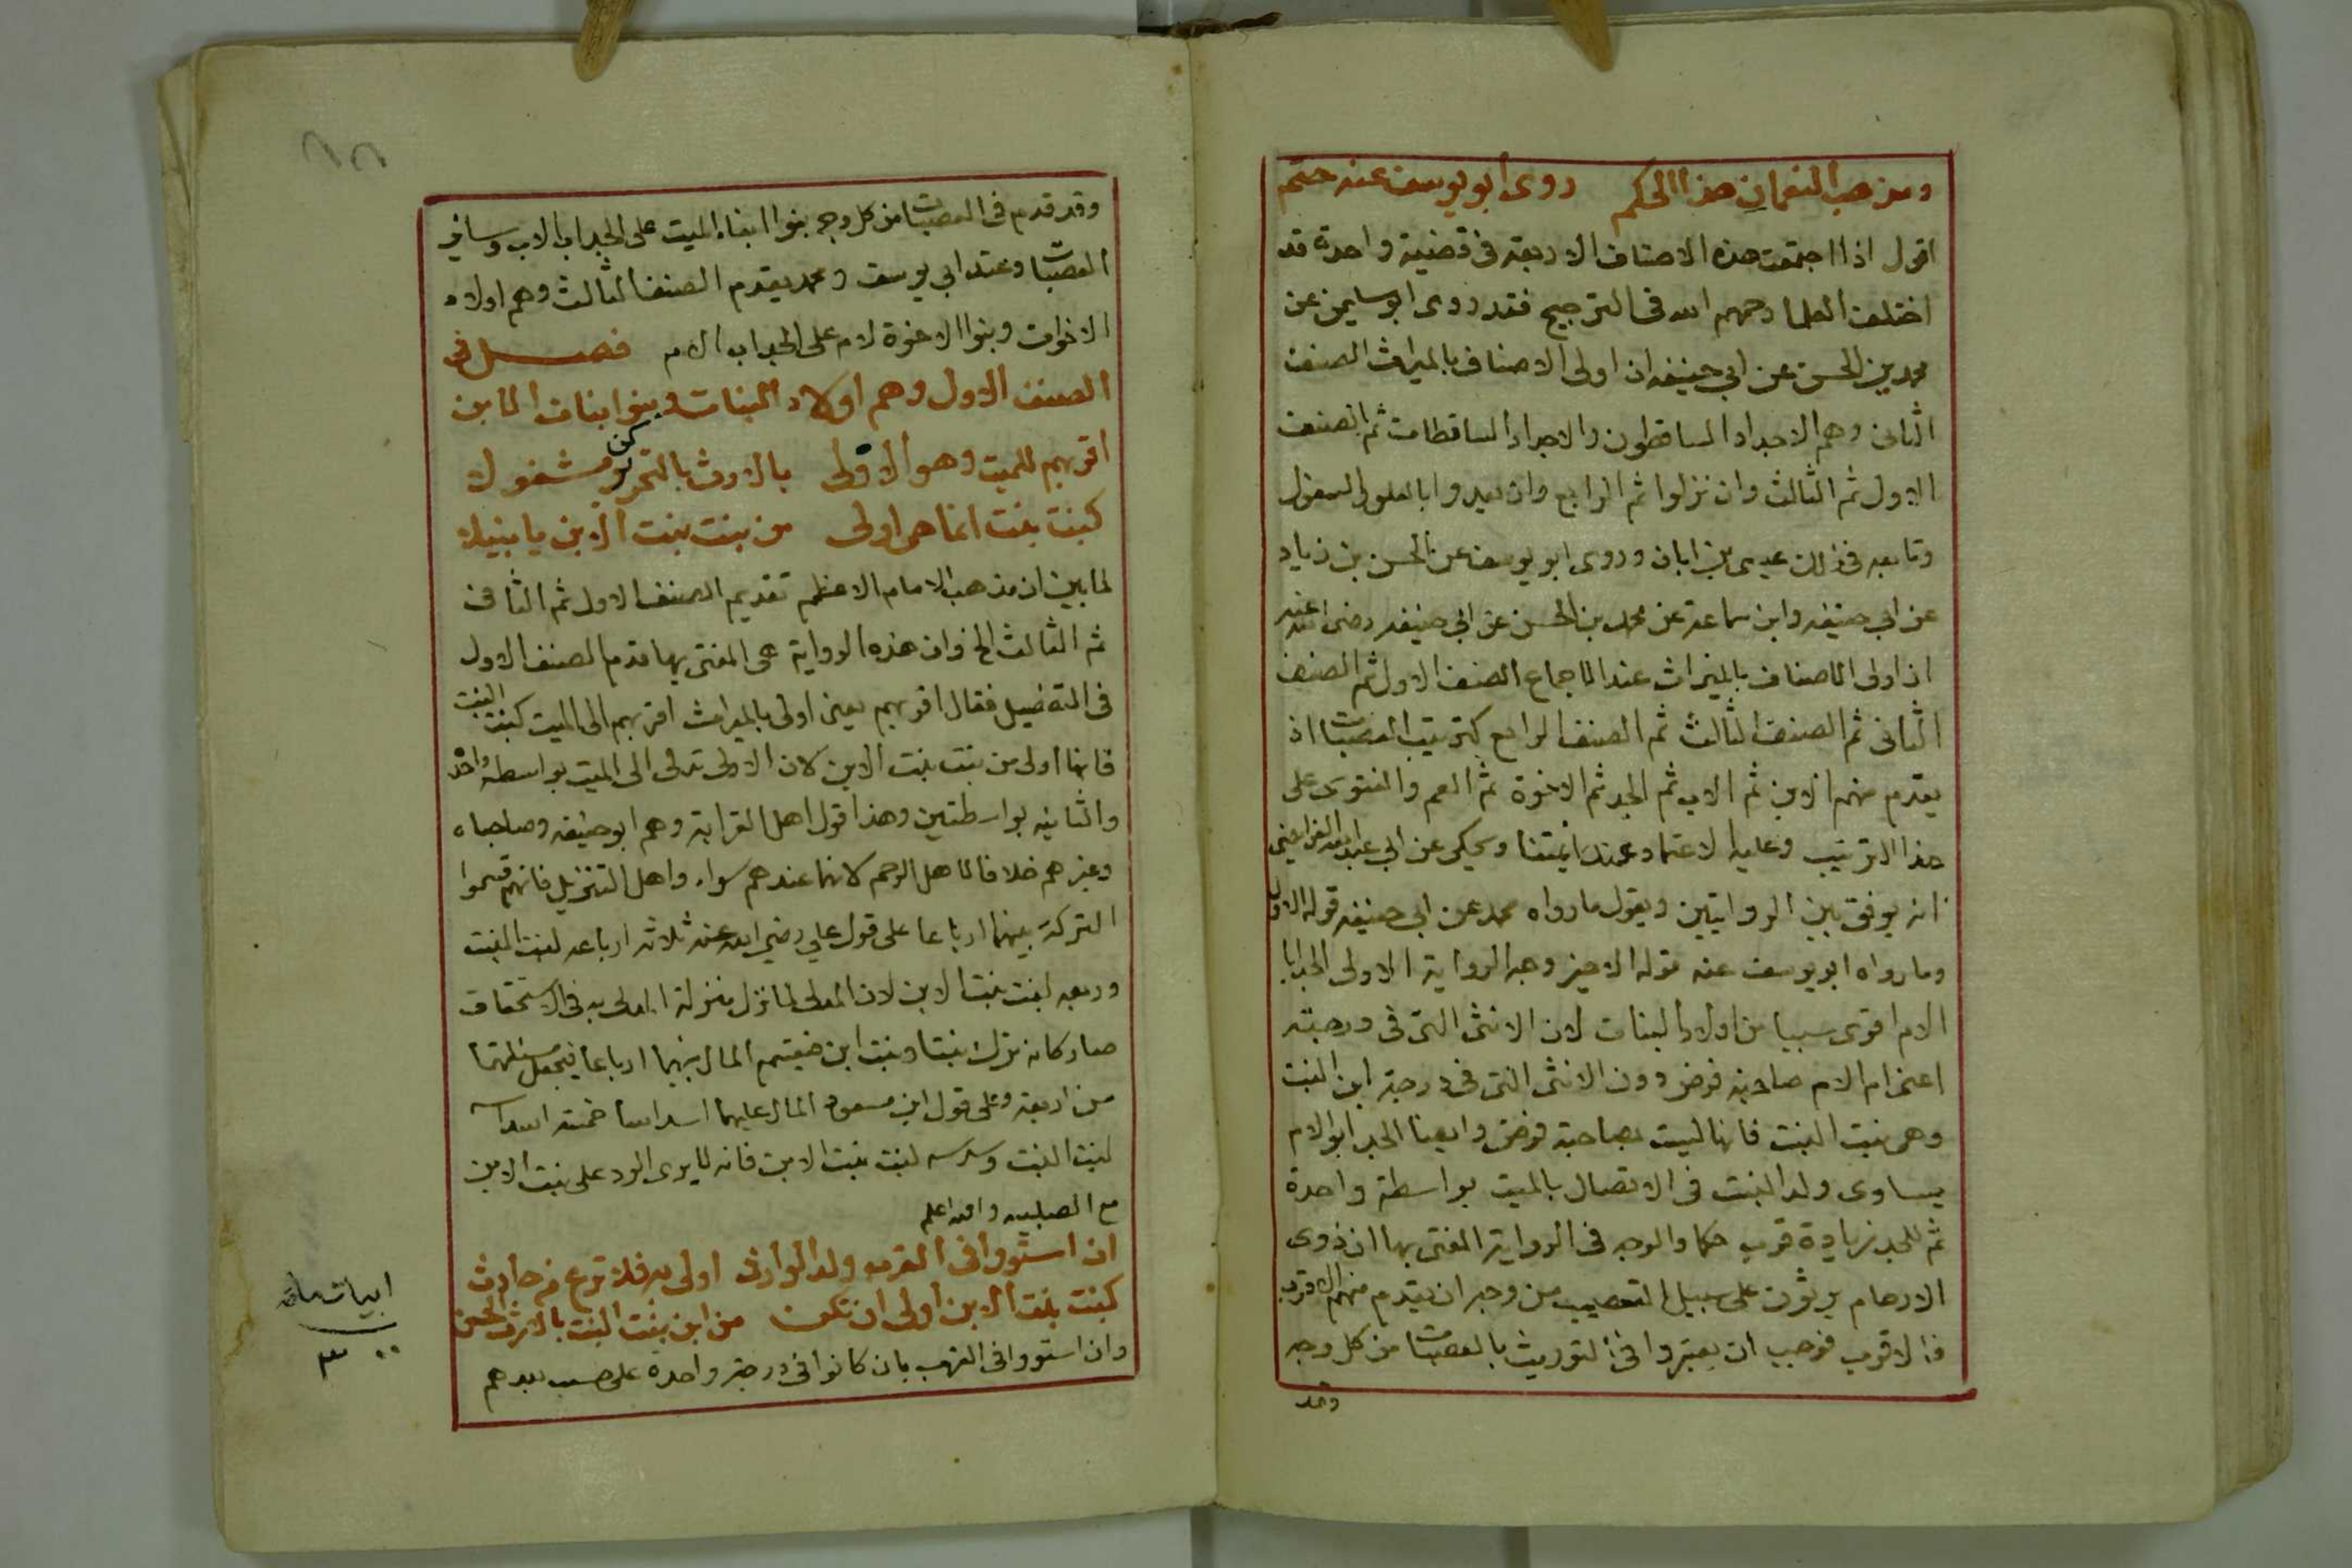 ومذهب النعمان هذا الحكم روى ابو يوسف عنه حتم
اقول اذا اجتمعت هذه الاصناف الاربعة فى قضية واحدة قد
اختلف العلما رحمهم الله فى الترجيح فقد روى ابو سليمن عن
محمد بن الحسن عن ابي حنيفه ان اولى الاصناف بالميراث الصنف
الثانى وهم الاجداد الساقطون والاجداد الساقطات ثم الصنف
الاول ثم الثالث وان نزلوا ثم الرابع وان بعدوا بالعلو او السفول
وتابعه فى ذلك عيسى بن ابان وروى ابو يوسف عن الحسن بن زياد
عن ابي حنيفه وابن سماعة عن محمد بن الحسن عن ابي حنيفه رضى الله عنه
ان اولى الاصناف بالميراث عند الاجماع الصنف الاول ثم الصنف
الثانى ثم الصنف الثالث ثم الصنف الرابع كترتيب العصبات اذ
يقدم منهم الابن ثم الاب ثم الجد ثم الاخوة ثم العم والفتوى على
هذا الترتيب وعليه الاعتماد عند ائمتنا ويحكى عن ابي عبد الله الفراضى
انه يوفق بين الروايتين ويقول ما رواه محمد عن ابي حنيفه قوله الاول
وما رواه ابو يوسف عنه قوله الاخير وجه الرواية الاولى الجد ابا
الام اقوى سببا من اولاد البنات لان الانثى التى فى درجته
اعنى ام الام صاحبة فرض دون الانثى التى فى درجة ابن البنت
وهى بنت البنت فانها ليست بصاحبة فرض وايضا الجد ابو الام
يساوى ولد البنت فى الاتصال بالميت بواسطة واحدة
ثم للجد زيادة قرب حكما والوجه فى الرواية المفتى بها ان ذوى
الارحام يرثون على سبيل التعصيب من وجه ان يقدم منهم الاقرب
فالاقرب فوجب ان يعتبروا فى التوريث بالعصبات من كل وجه
وقد
وقد قدم فى العصبات من كل وجه بنوا ابناء الميت على الجد اب الاب وسائر
العصبات وعند ابي يوسف ومحمد يقدم الصنف الثالث وهم اولاد
الاخوات وبنوا الاخوة لام على الجد اب الام فصل فى
الصنف الاول وهم اولاد البنات وبنو ابنات الابن
اقربهم للميت وهو الاولى بالارث بالتحرير كن مشغولا
كبنت بنت انما هى اولى من بنت بنت الابن يا نبيلا
لما بين ان مذهب الامام الاعظم تقديم الصنف الاول ثم الثانى
ثم الثالث الخ وان هذه الرواية هى المفتى بها قدم الصنف الاول
فى التفضيل فقال اقربهم يعنى اولى بالميراث اقربهم الى الميت كبنت البنت
فانها اولى من بنت بنت الابن لان الاولى تدلى الى الميت بواسطه واحده
والثانيه بواسطتين وهذا قول اهل القرابة وهم ابو حنيفه وصاحباه
وغيرهم خلافا لاهل الرحم لانهما عندهم سواء واهل التنزيل فانهم قسموا
التركة بينهما ارباعا على قول علي رضي الله عنه ثلاثة ارباعه لبنت البنت
وربعه لبنت بنت الابن لان المدلى لما نزل منزلة المدلى به فى الاستحقاق
صار كانه ترك بنتا وبنت ابن فيقسم المال بينهما ارباعا فيجعل مسئلتهما
من اربعة وعلى قول ابن مسعود المال عليهما اسداسا خمسة اسداسه
لبنت البنت وسدسه لبنت بنت الابن فانه لا يرى الرد على بنت الابن
مع الصلبيه والله اعلم
ان استووا فى القرب ولد الوارث اولى به فلا ترع من حادث
كبنت بنت الابن اولى ان تكن من ابن بنت البنت بالارث الحسن
وان استووا فى القرب بان كانوا فى درجة واحدة على حسب بعدهم
ابيات مائه
٣٠٠